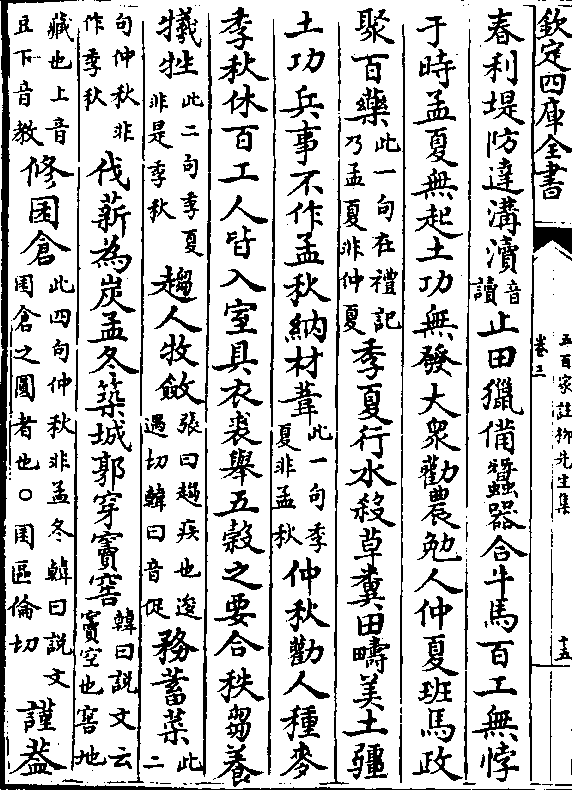 欽定四庫全書
五百家註柳先生集
卷三
十五
春利堤防達溝瀆音讀止田獵備蠶器合牛馬百工無悖
于時孟夏無起土功無發大衆勸農勉人仲夏班馬政
聚百藥此一句在禮記乃孟夏非仲夏季夏行水殺草糞田疇美土疆
土功兵事不作孟秋納材葦此一句季夏非孟秋仲秋勸人種麥
季秋休百工人皆入室具衣裘舉五穀之要合秩芻養
犧牲此二句季夏非是季秋趨人牧斂張曰趨疾也逡遇切韓曰音促務蓄菜此二
句仲秋非作季秋伐薪為炭孟冬築城郭穿竇窖韓曰説文云竇空也窖地
藏也上音豆下音教修囷倉此四句仲秋非孟冬韓曰説文囷倉之圓者也○囷區倫切謹蓋